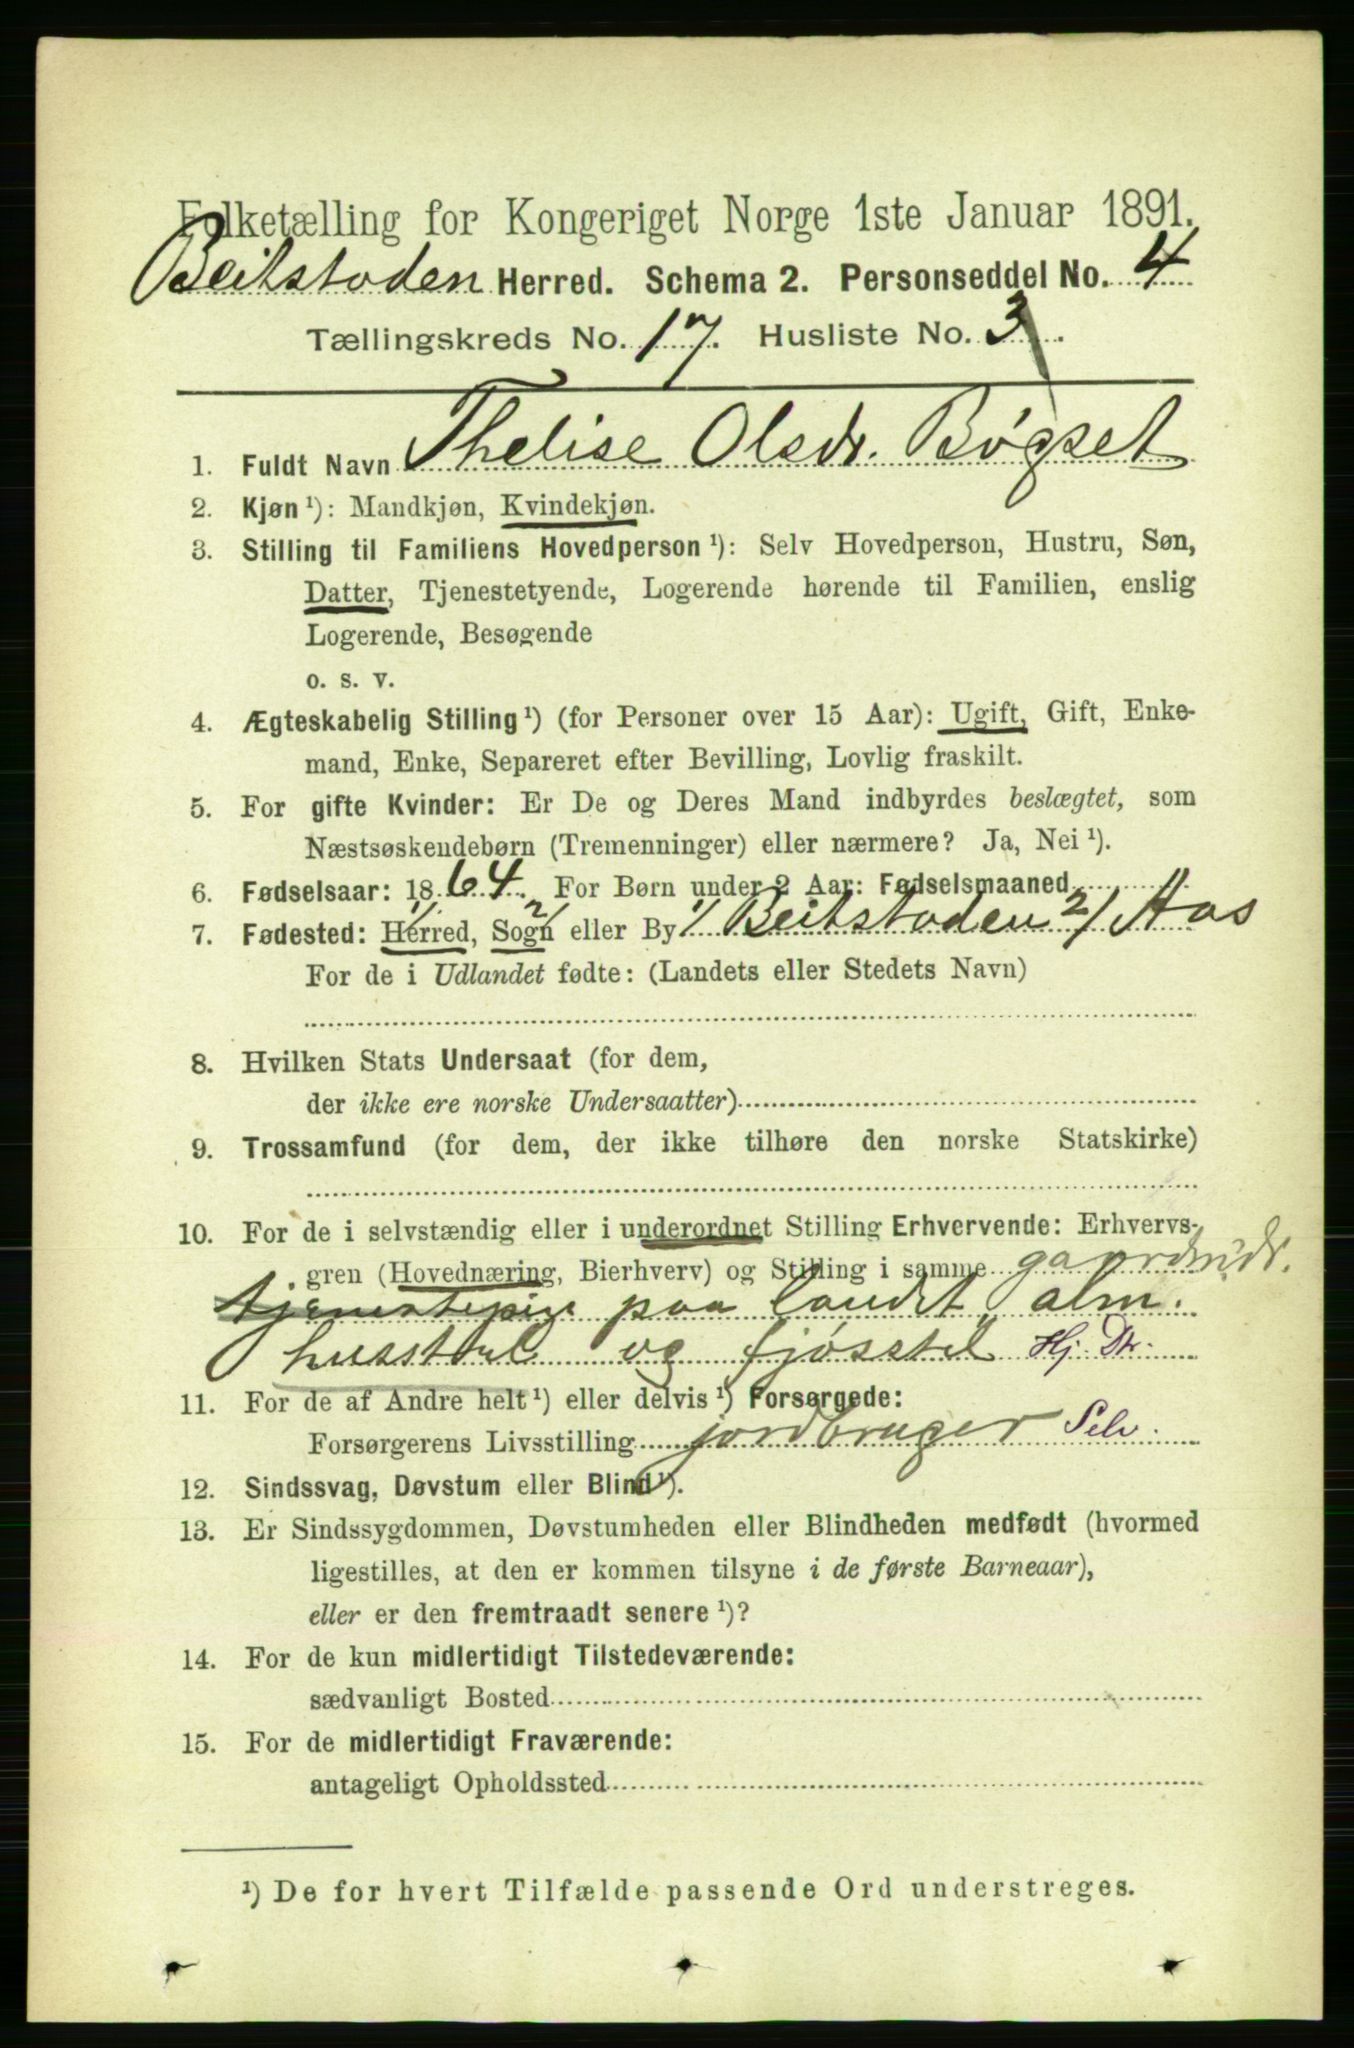 Folketælling for Kongeriget Norge 1ste Januar 1891.
Beitstaden Herred. Schema 2. Personseddel No. 4
Tællingskreds No. 17. Husliste No. 3.
1. Fuldt Navn Thelise Olsdr. Bøgset
2. Kjøn ¹): Mandkjøn, Kvindekjøn.
3. Stilling til Familiens Hovedperson ¹): Selv Hovedperson, Hustru, Søn,
Datter, Tjenestetyende, Logerende hørende til Familien, enslig
Logerende, Besøgende
o. s. v.
4. Ægteskabelig Stilling ¹) (for Personer over 15 Aar): Ugift, Gift, Enke-
mand, Enke, Separeret efter Bevilling, Lovlig fraskilt.
5. For gifte Kvinder: Er De og Deres Mand indbyrdes beslægtet, som
Næstsøskendebørn (Tremenninger) eller nærmere? Ja, Nei ¹).
6. Fødselsaar: 1864. For Børn under 2 Aar: Fødselsmaaned
1/ 2/
7. Fødested: Herred, Sogn eller By 1/ Beitstaden 2/ Aas
For de i Udlandet fødte: (Landets eller Stedets Navn)
8. Hvilken Stats Undersaat (for dem,
der ikke ere norske Undersaatter)
9. Trossamfund (for dem, der ikke tilhøre den norske Statskirke)
10. For de i selvstændig eller i underordnet Stilling Erhvervende: Erhvervs-
gren (Hovednæring, Bierhverv) og Stilling i samme gaardbrdr.
tjenestepige paa landet alm.
husstel og fjøsstel Hj. Dtr.
11. For de af Andre helt ¹) eller delvis ¹) Forsørgede:
Forsørgerens Livsstilling jordbruger Selv.
12. Sindssvag, Døvstum eller Blind ¹).
13. Er Sindssygdommen, Døvstumheden eller Blindheden medfødt (hvormed
ligestilles, at den er kommen tilsyne i de første Barneaar),
eller er den fremtraadt senere ¹)?
14. For de kun midlertidigt Tilstedeværende:
sædvanligt Bosted
15. For de midlertidigt Fraværende:
antageligt Opholdssted
¹) De for hvert Tilfælde passende Ord understreges.